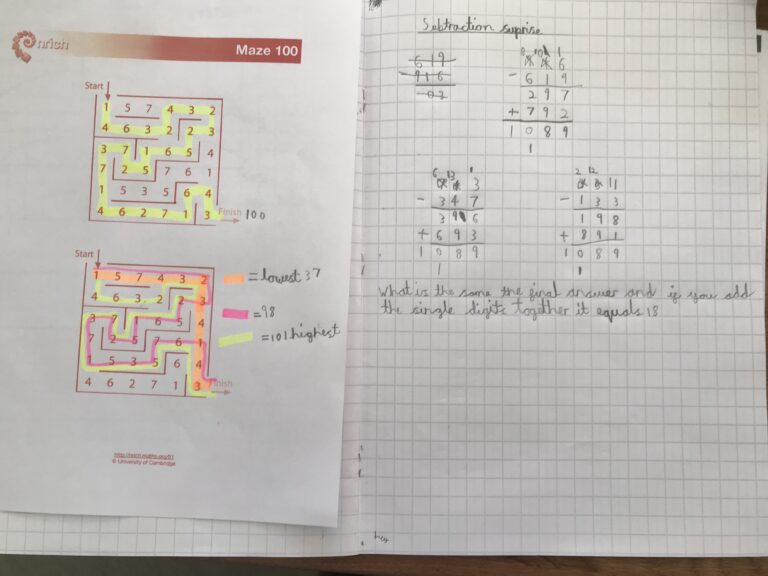 nrich
Maze 100
Start
1 5 7 4 3 2
4 6 3 2 2 3
3 7 1 6 5 4
7 2 5 7 6 1
1 5 3 5 6 4
4 6 2 7 1 3 Finish 100
Start
1 5 7 4 3 2 = lowest 37
4 6 3 2 2 3
3 7 1 6 5 4 = 98
7 2 5 7 6 1 = 101 highest
1 5 3 5 6 4
4 6 2 7 1 3 Finish
http://nrich.maths.org/91
© University of Cambridge
Subtraction suprise
619
- 916
- 6 1 9
2 9 7
+ 7 9 2
1 0 8 9
1
6 13
- 3 4 7
+ 6 9 3
1 0 8 9
1
2 12
- 1 3 3
1 9 8
+ 8 9 1
1 0 8 9
1
What is the same the final answer and if you add
the single digits together it equals 18